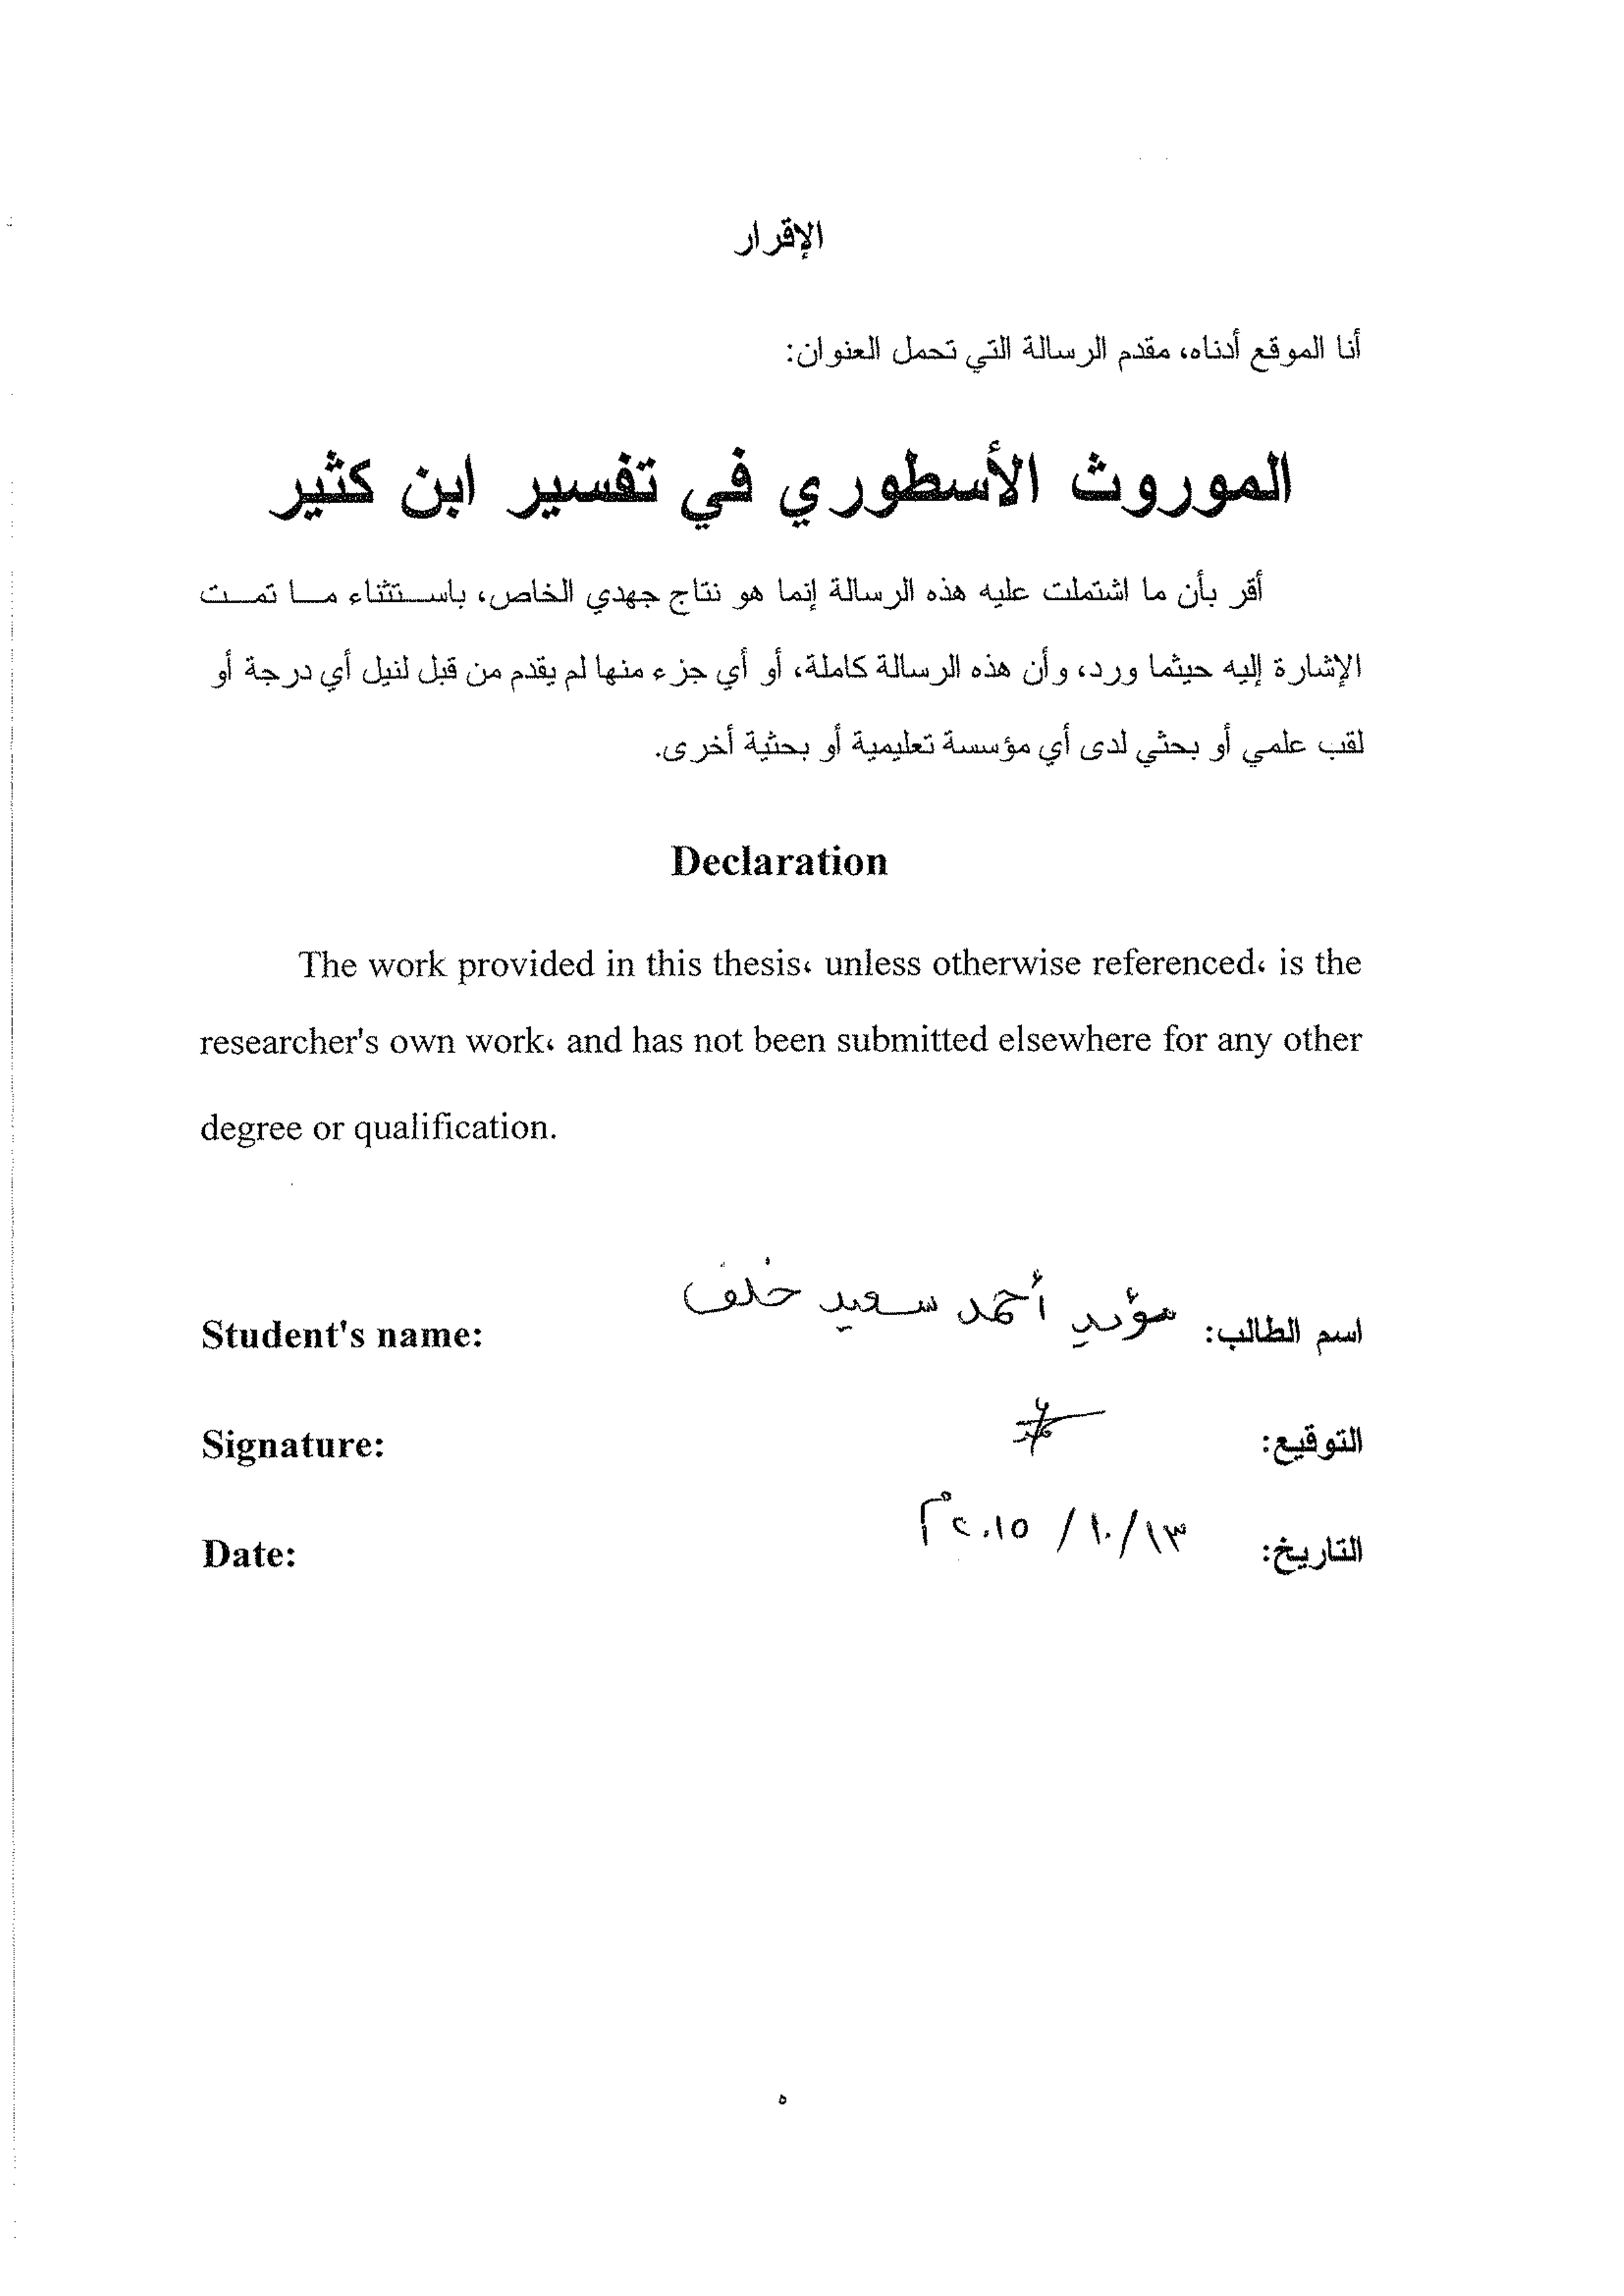 الإقرار
أنا الموقع أدناه، مقدم الرسالة التي تحمل العنوان:
الموروث الأسطوري في تفسير ابن كثير
أقر بأن ما اشتملت عليه هذه الرسالة إنما هو نتاج جهدي الخاص، باستثناء ما تمت
الإشارة إليه حيثما ورد، وأن هذه الرسالة كاملة، أو أي جزء منها لم يقدم من قبل لنيل أي درجة أو
لقب علمي أو بحثي لدى أي مؤسسة تعليمية أو بحثية أخرى.
Declaration
The work provided in this thesis، unless otherwise referenced، is the
researcher's own work، and has not been submitted elsewhere for any other
degree or qualification.
Student's name: اسم الطالب: مؤيد أحمد سعيد خلف
Signature: التوقيع:
Date: التاريخ: ١٣/١٠/٢٠١٥م
ه